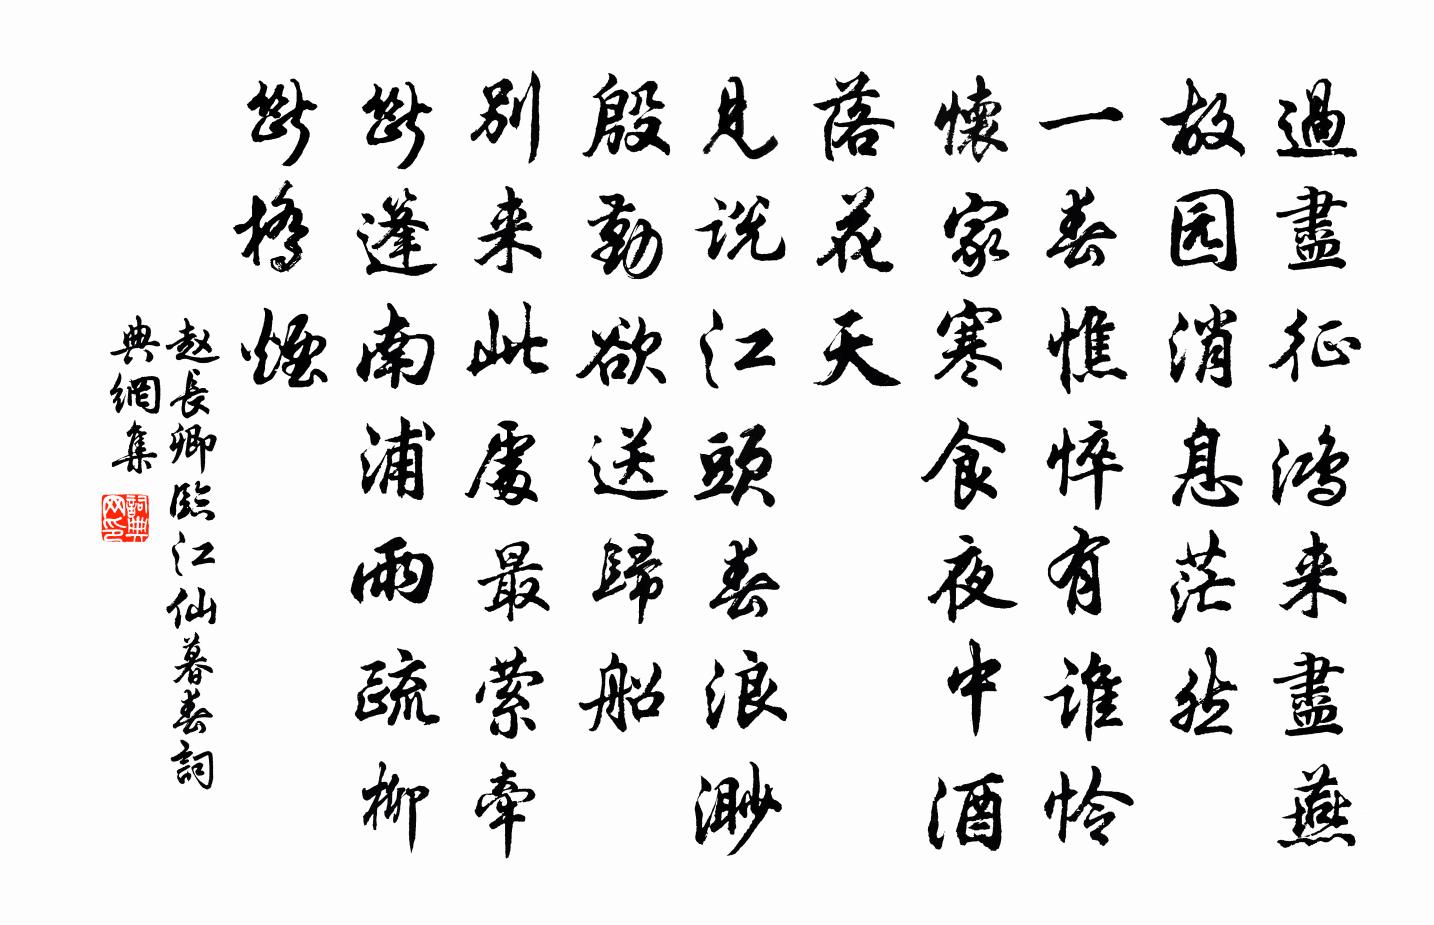 過盡征鴻来盡燕
故园消息茫然
一春憔悴有谁怜
懷家寒食夜中酒
落花天
見说江頭春浪渺
殷勤欲送歸船
别来此處最萦牵
斷蓬南浦雨疏柳
斷橋煙
赵長卿臨江仙暮春詞
典網集
詞典
网印